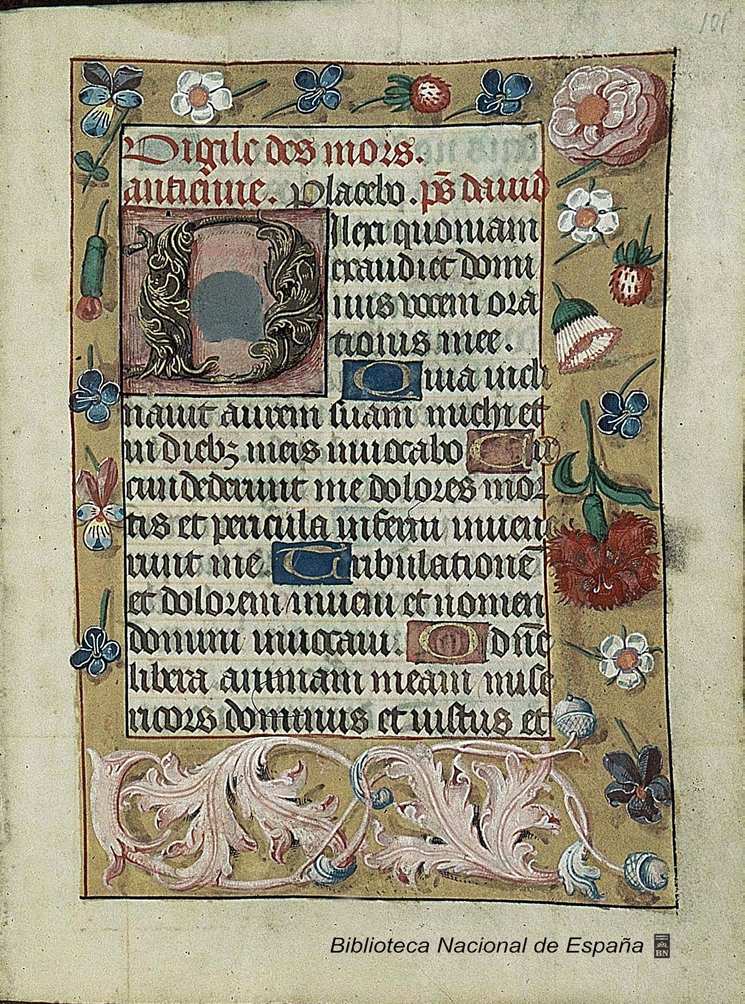 101
Vigile des mors.
antienne. Placebo. ps̄ david
Dilexi quoniam
exaudiet domi
nus vocem ora
tionis mee.
Quia incli
navit aurem suam michi et
in diebꝫ meis invocabo Cir
cumdederunt me dolores mor
tis et pericula inferni inuene
runt me Tribulationē
et dolorem inueni et nomen
domini invocavi. O dn̄e
libera animam meam mise
ricors dominus et iustus et
Biblioteca Nacional de España
BN